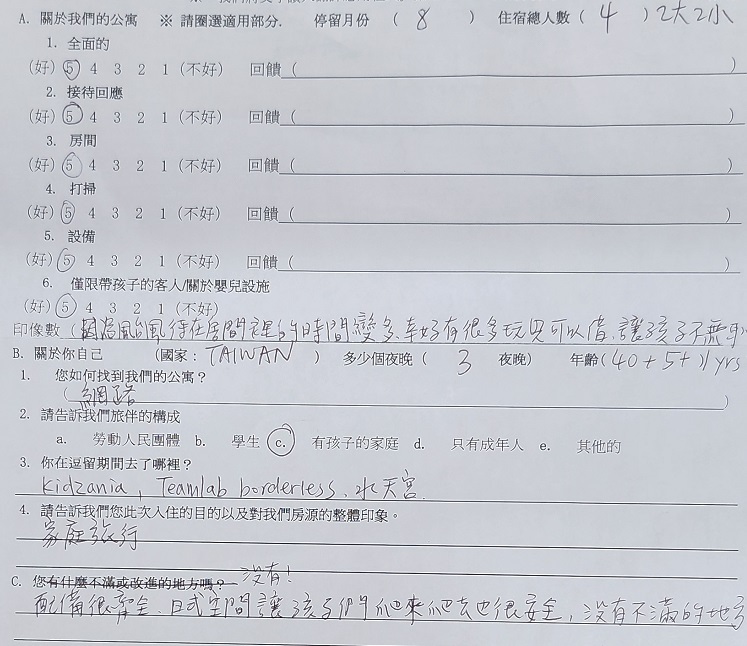 A. 關於我們的公寓 ※ 請圈選適用部分. 停留月份 ( 8 ) 住宿總人數 ( 4 ) 2大2小
1. 全面的
(好) 5 4 3 2 1 (不好) 回饋 ( )
2. 接待回應
(好) 5 4 3 2 1 (不好) 回饋 ( )
3. 房間
(好) 5 4 3 2 1 (不好) 回饋 ( )
4. 打掃
(好) 5 4 3 2 1 (不好) 回饋 ( )
5. 設備
(好) 5 4 3 2 1 (不好) 回饋 ( )
6. 僅限帶孩子的客人/關於嬰兒設施
(好) 5 4 3 2 1 (不好)
印像數 (因為颱風待在房間裡的時間變多、幸好有很多玩具可以借、讓孩子不無
B. 關於你自己 (國家: TAIWAN ) 多少個夜晚 ( 3 夜晚) 年齡(40+5+1)yrs
1. 您如何找到我們的公寓?
( 網路 )
2. 請告訴我們旅伴的構成
a. 勞動人民團體 b. 學生 c. 有孩子的家庭 d. 只有成年人 e. 其他的
3. 你在逗留期間去了哪裡?
Kidzania, Teamlab borderless、水天宮.
4. 請告訴我們您此次入住的目的以及對我們房源的整體印象。
家庭旅行
C. 您有什麼不滿或改進的地方嗎? 沒有!
配備很齊全、日式空間讓孩子們爬來爬去也很安全,沒有不滿的地方